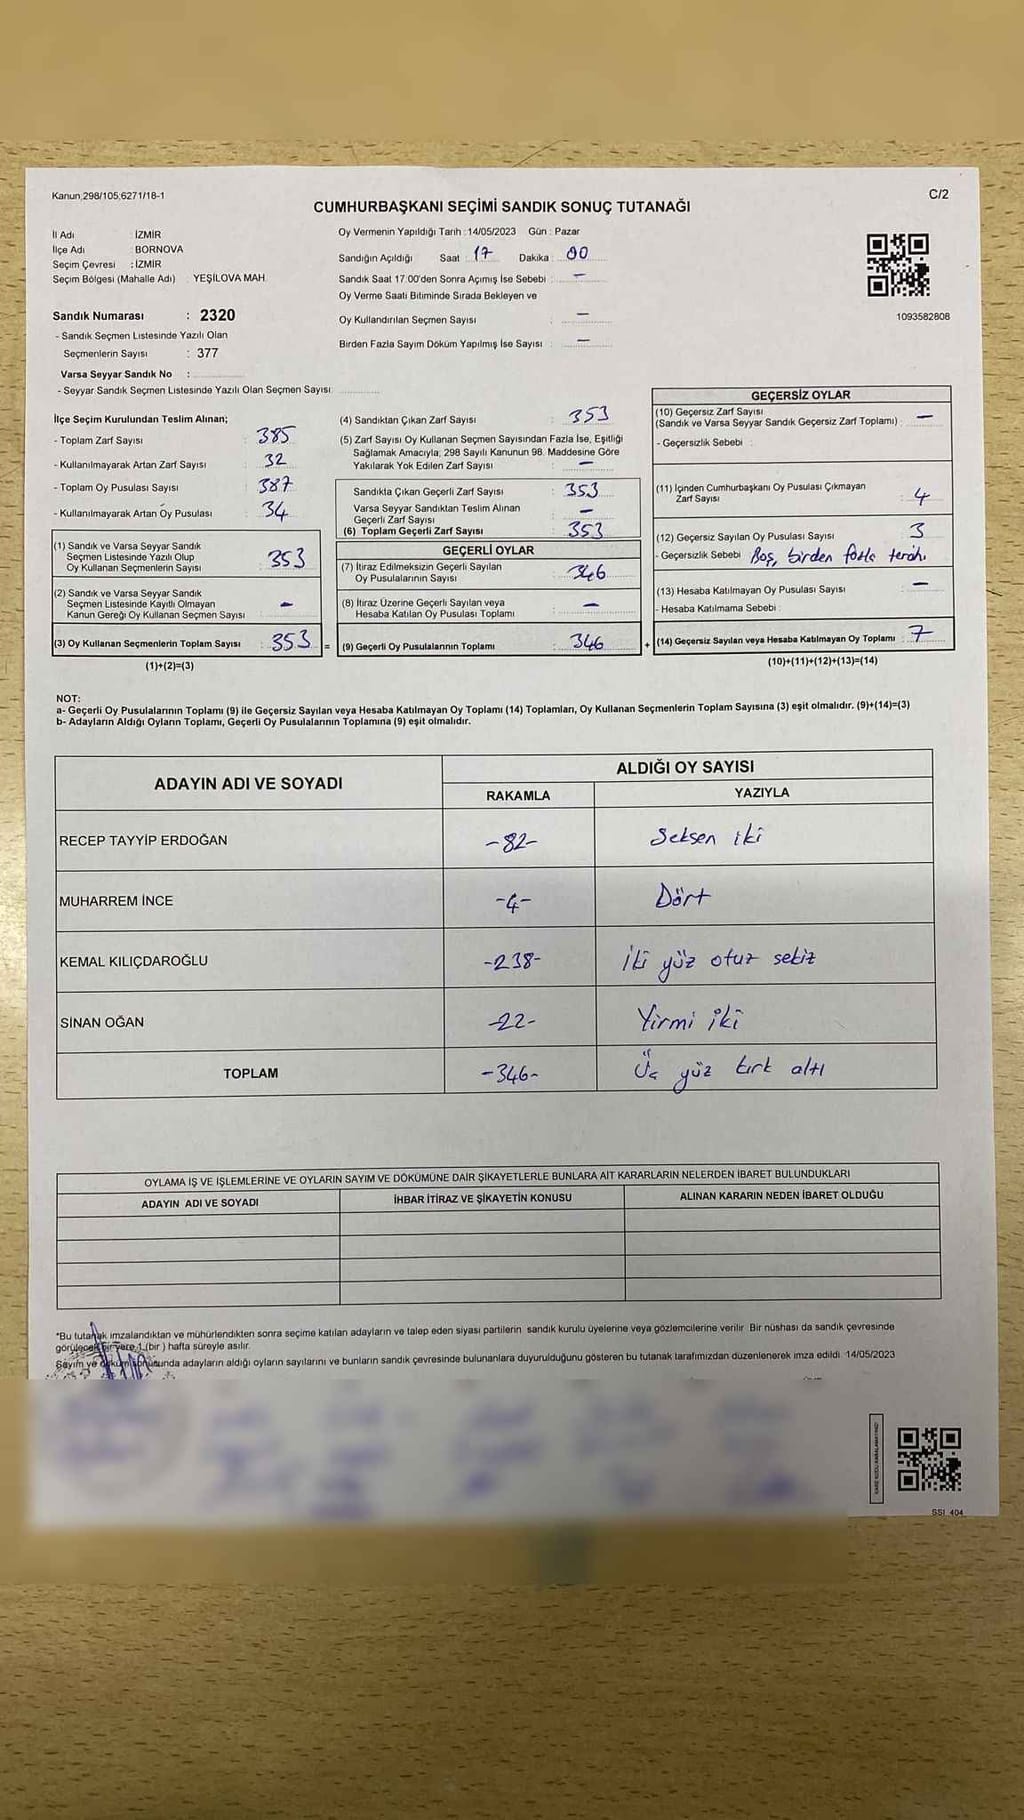 Kanun;298/105;6271/18-1
C/2
CUMHURBAŞKANI SEÇİMİ SANDIK SONUÇ TUTANAĞI
İl Adı : İZMİR
İlçe Adı : BORNOVA
Seçim Çevresi : İZMİR
Seçim Bölgesi (Mahalle Adı) : YEŞİLOVA MAH.
Sandık Numarası : 2320
- Sandık Seçmen Listesinde Yazılı Olan
Seçmenlerin Sayısı : 377
Varsa Seyyar Sandık No :
- Seyyar Sandık Seçmen Listesinde Yazılı Olan Seçmen Sayısı:
Oy Vermenin Yapıldığı Tarih : 14/05/2023 Gün : Pazar
Sandığın Açıldığı Saat : 17 Dakika : 00
Sandık Saat 17:00'den Sonra Açımış İse Sebebi : -
Oy Verme Saati Bitiminde Sırada Bekleyen ve
Oy Kullandırılan Seçmen Sayısı : -
Birden Fazla Sayım Döküm Yapılmış İse Sayısı : -
1093582808
İlçe Seçim Kurulundan Teslim Alınan;
- Toplam Zarf Sayısı : 385
- Kullanılmayarak Artan Zarf Sayısı : 32
- Toplam Oy Pusulası Sayısı : 387
- Kullanılmayarak Artan Oy Pusulası : 34
(1) Sandık ve Varsa Seyyar Sandık
Seçmen Listesinde Yazılı Olup
Oy Kullanan Seçmenlerin Sayısı : 353
(2) Sandık ve Varsa Seyyar Sandık
Seçmen Listesinde Kayıtlı Olmayan
Kanun Gereği Oy Kullanan Seçmen Sayısı : -
(3) Oy Kullanan Seçmenlerin Toplam Sayısı : 353 =
(1)+(2)=(3)
(4) Sandıktan Çıkan Zarf Sayısı : 353
(5) Zarf Sayısı Oy Kullanan Seçmen Sayısından Fazla İse, Eşitliği
Sağlamak Amacıyla, 298 Sayılı Kanunun 98. Maddesine Göre
Yakılarak Yok Edilen Zarf Sayısı : -
Sandıkta Çıkan Geçerli Zarf Sayısı : 353
Varsa Seyyar Sandıktan Teslim Alınan
Geçerli Zarf Sayısı : -
(6) Toplam Geçerli Zarf Sayısı : 353
GEÇERLİ OYLAR
(7) İtiraz Edilmeksizin Geçerli Sayılan
Oy Pusulalarının Sayısı : 346
(8) İtiraz Üzerine Geçerli Sayılan veya
Hesaba Katılan Oy Pusulası Toplamı : -
(9) Geçerli Oy Pusulalarının Toplamı : 346 +
GEÇERSİZ OYLAR
(10) Geçersiz Zarf Sayısı
(Sandık ve Varsa Seyyar Sandık Geçersiz Zarf Toplamı) : -
- Geçersizlik Sebebi :
(11) İçinden Cumhurbaşkanı Oy Pusulası Çıkmayan
Zarf Sayısı : 4
(12) Geçersiz Sayılan Oy Pusulası Sayısı : 3
- Geçersizlik Sebebi : Boş, birden fazla tercih
(13) Hesaba Katılmayan Oy Pusulası Sayısı : -
- Hesaba Katılmama Sebebi :
(14) Geçersiz Sayılan veya Hesaba Katılmayan Oy Toplamı : 7
(10)+(11)+(12)+(13)=(14)
NOT:
a- Geçerli Oy Pusulalarının Toplamı (9) ile Geçersiz Sayılan veya Hesaba Katılmayan Oy Toplamı (14) Toplamları, Oy Kullanan Seçmenlerin Toplam Sayısına (3) eşit olmalıdır. (9)+(14)=(3)
b- Adayların Aldığı Oyların Toplamı, Geçerli Oy Pusulalarının Toplamına (9) eşit olmalıdır.
ADAYIN ADI VE SOYADI
ALDIĞI OY SAYISI
RAKAMLA YAZIYLA
RECEP TAYYİP ERDOĞAN -82- Seksen iki
MUHARREM İNCE -4- Dört
KEMAL KILIÇDAROĞLU -238- İki yüz otuz sekiz
SİNAN OĞAN -22- Yirmi iki
TOPLAM -346- Üç yüz kırk altı
OYLAMA İŞ VE İŞLEMLERİNE VE OYLARIN SAYIM VE DÖKÜMÜNE DAİR ŞİKAYETLERLE BUNLARA AİT KARARLARIN NELERDEN İBARET BULUNDUKLARI
ADAYIN ADI VE SOYADI İHBAR İTİRAZ VE ŞİKAYETİN KONUSU ALINAN KARARIN NEDEN İBARET OLDUĞU
*Bu tutanak imzalandıktan ve mühürlendikten sonra seçime katılan adayların ve talep eden siyasi partilerin sandık kurulu üyelerine veya gözlemcilerine verilir. Bir nüshası da sandık çevresinde
görülecek bir yere 1 (bir ) hafta süreyle asılır.
Sayım ve döküm sonucunda adayların aldığı oyların sayılarını ve bunların sandık çevresinde bulunanlara duyurulduğunu gösteren bu tutanak tarafımızdan düzenlenerek imza edildi. 14/05/2023
SSI 404